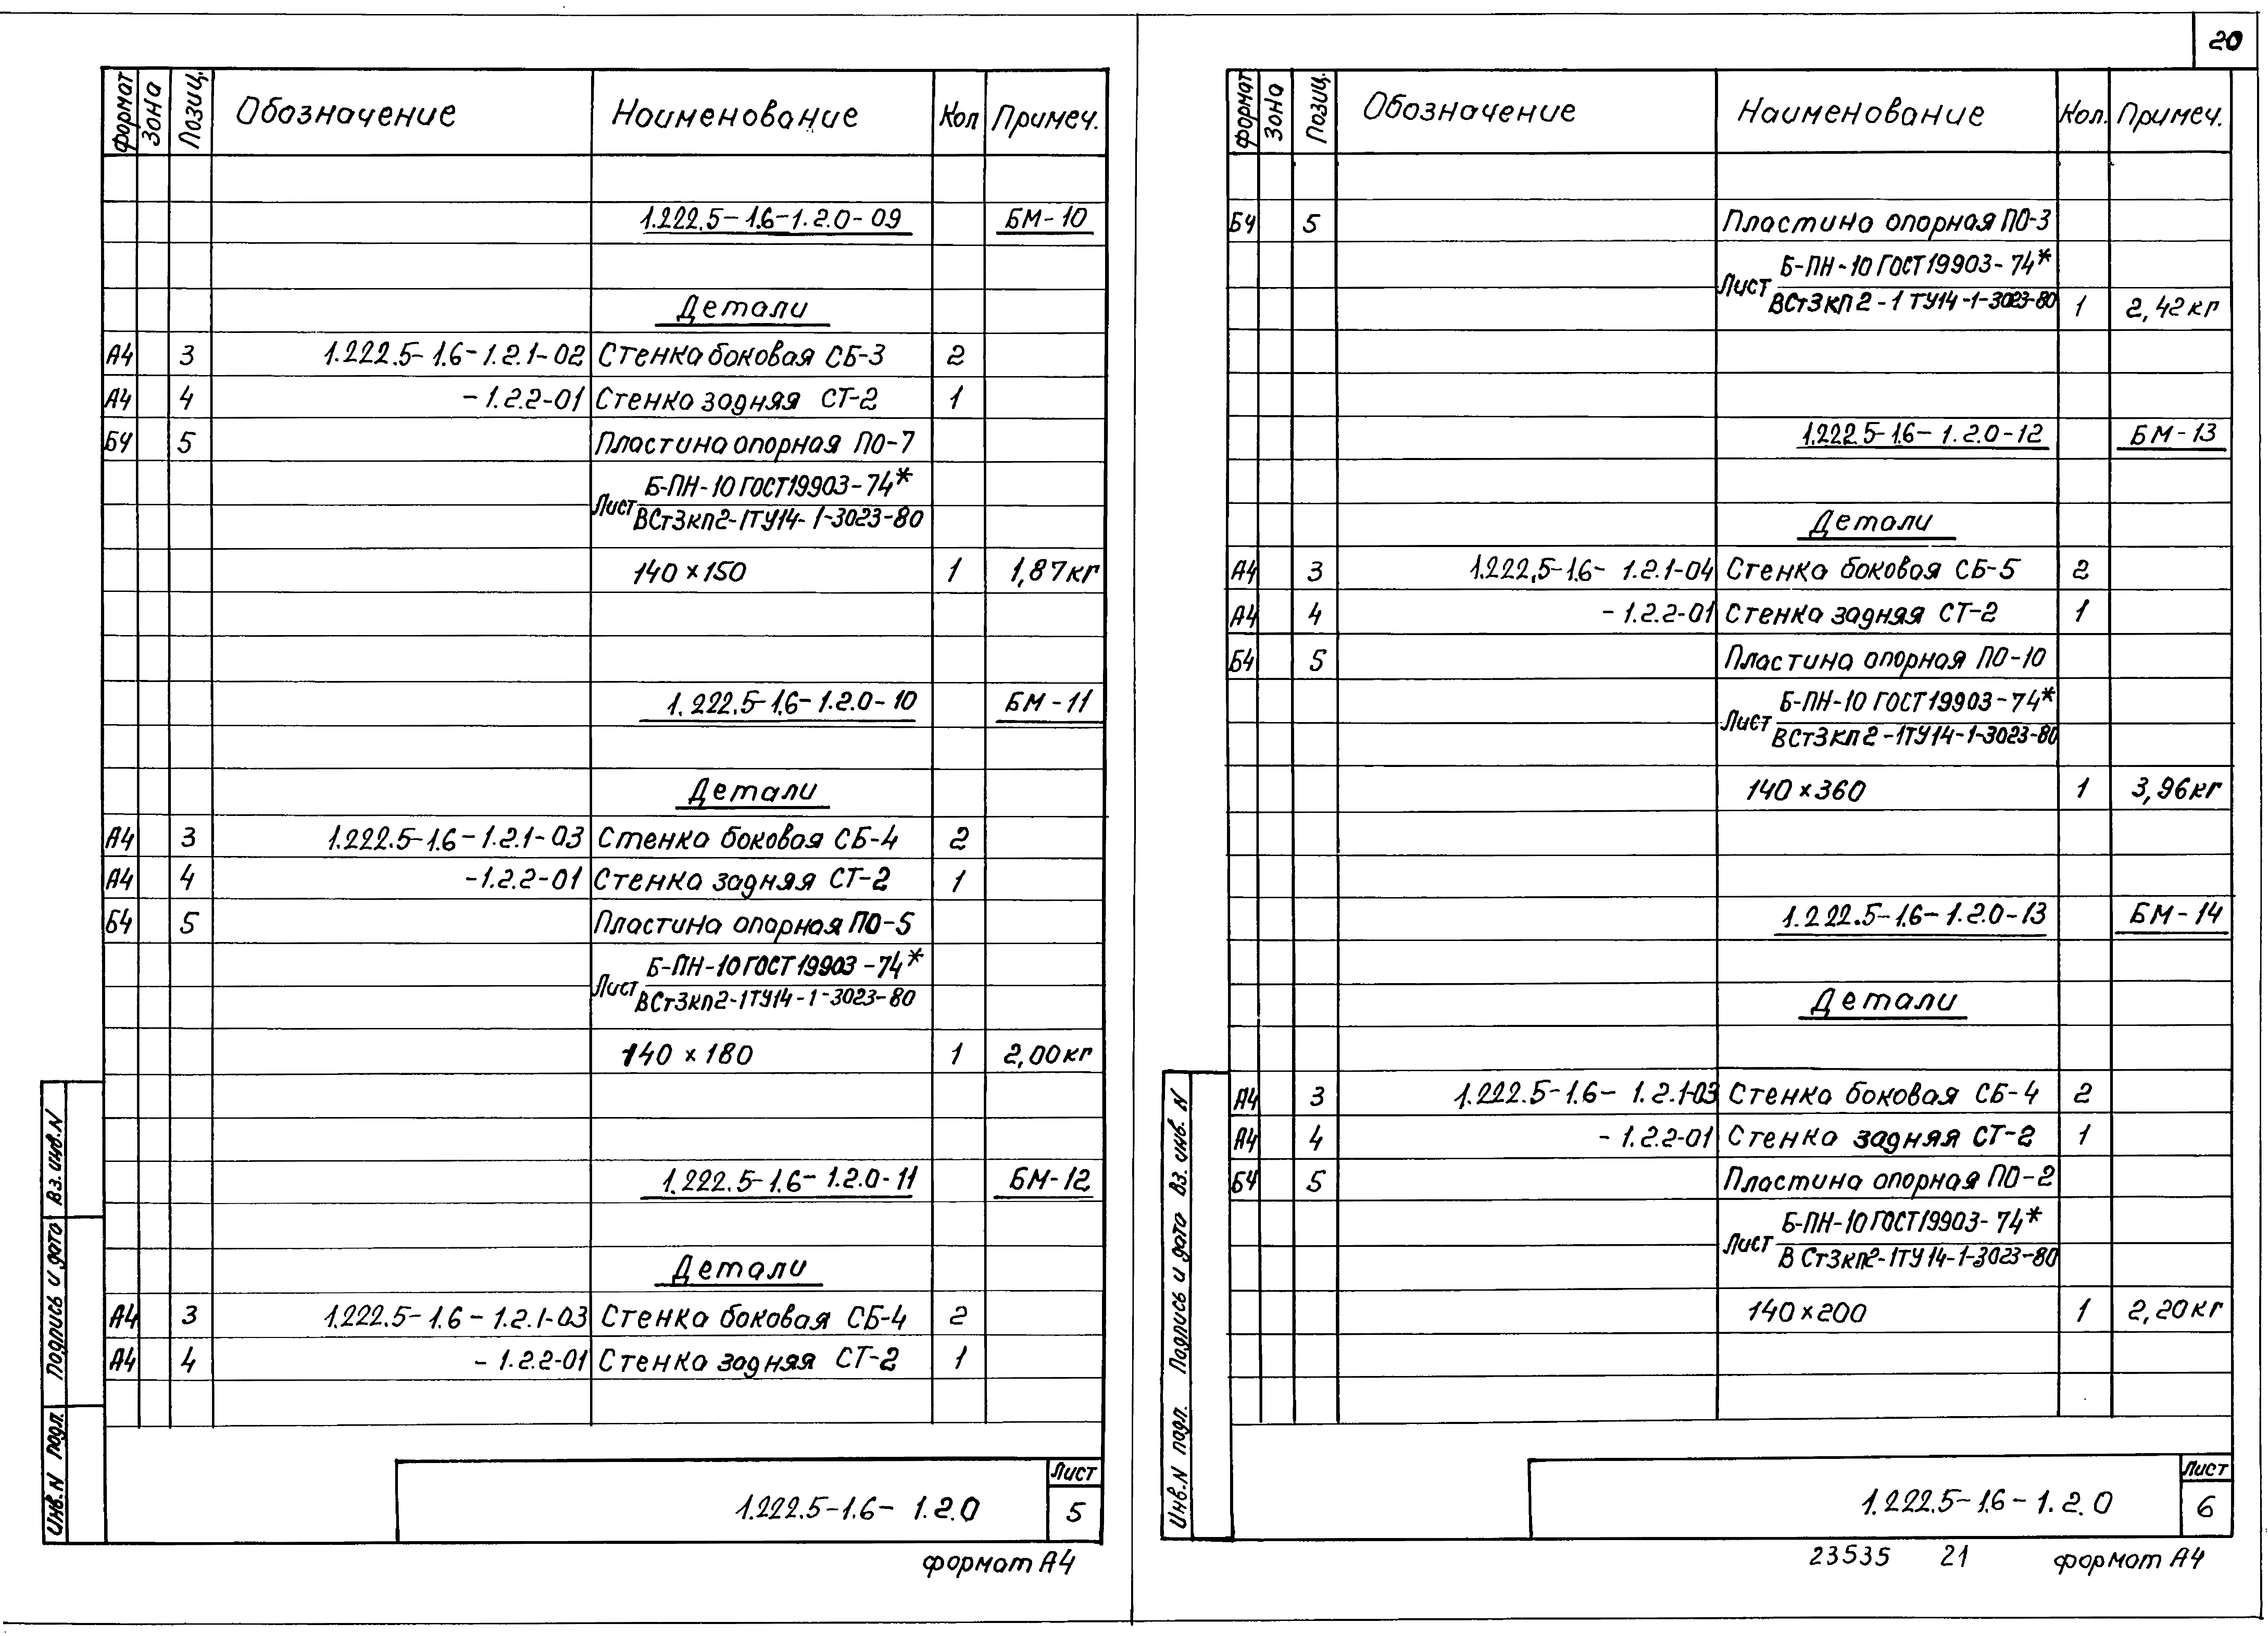 20
формат зона Позиц. Обозначение Наименование Кол Примеч.
1.222.5-1.6-1.2.0-09 БМ-10
Детали
А4 3 1.222.5-1.6-1.2.1-02 Стенка боковая СБ-3 2
А4 4 -1.2.2-01 Стенка задняя СТ-2 1
БЧ 5 Пластина опорная ПО-7
Б-ПН-10 ГОСТ19903-74*
Лист
ВСт3кп2-1ТУ14-1-3023-80
140×150 1 1,87кг
1.222.5-1.6-1.2.0-10 БМ-11
Детали
А4 3 1.222.5-1.6-1.2.1-03 Стенка боковая СБ-4 2
А4 4 -1.2.2-01 Стенка задняя СТ-2 1
Б4 5 Пластина опорная ПО-5
Б-ПН-10 ГОСТ19903-74*
Лист
ВСт3кп2-1ТУ14-1-3023-80
140×180 1 2,00кг
1.222.5-1.6-1.2.0-11 БМ-12
Детали
А4 3 1.222.5-1.6-1.2.1-03 Стенка боковая СБ-4 2
А4 4 -1.2.2-01 Стенка задняя СТ-2 1
Инв.N подл. Подпись и дата Вз.инв.N
1.222.5-1.6-1.2.0
Лист
5
формат А4
формат зона Позиц. Обозначение Наименование Кол. Примеч.
БЧ 5 Пластина опорная ПО-3
Б-ПН-10 ГОСТ19903-74*
Лист
ВСт3кп2-1 ТУ14-1-3023-80 1 2,42кг
1.222.5-1.6-1.2.0-12 БМ-13
Детали
А4 3 1.222.5-1.6-1.2.1-04 Стенка боковая СБ-5 2
А4 4 -1.2.2-01 Стенка задняя СТ-2 1
Б4 5 Пластина опорная ПО-10
Б-ПН-10 ГОСТ19903-74*
Лист
ВСт3кп2-1ТУ14-1-3023-80
140×360 1 3,96кг
1.222.5-1.6-1.2.0-13 БМ-14
Детали
А4 3 1.222.5-1.6-1.2.1-03 Стенка боковая СБ-4 2
А4 4 -1.2.2-01 Стенка задняя СТ-2 1
БЧ 5 Пластина опорная ПО-2
Б-ПН-10 ГОСТ19903-74*
Лист
ВСт3кп2-1ТУ14-1-3023-80
140×200 1 2,20кг
Инв.N подл. Подпись и дата Вз. инв. N
1.222.5-1.6-1.2.0
Лист
6
23535 21 формат А4